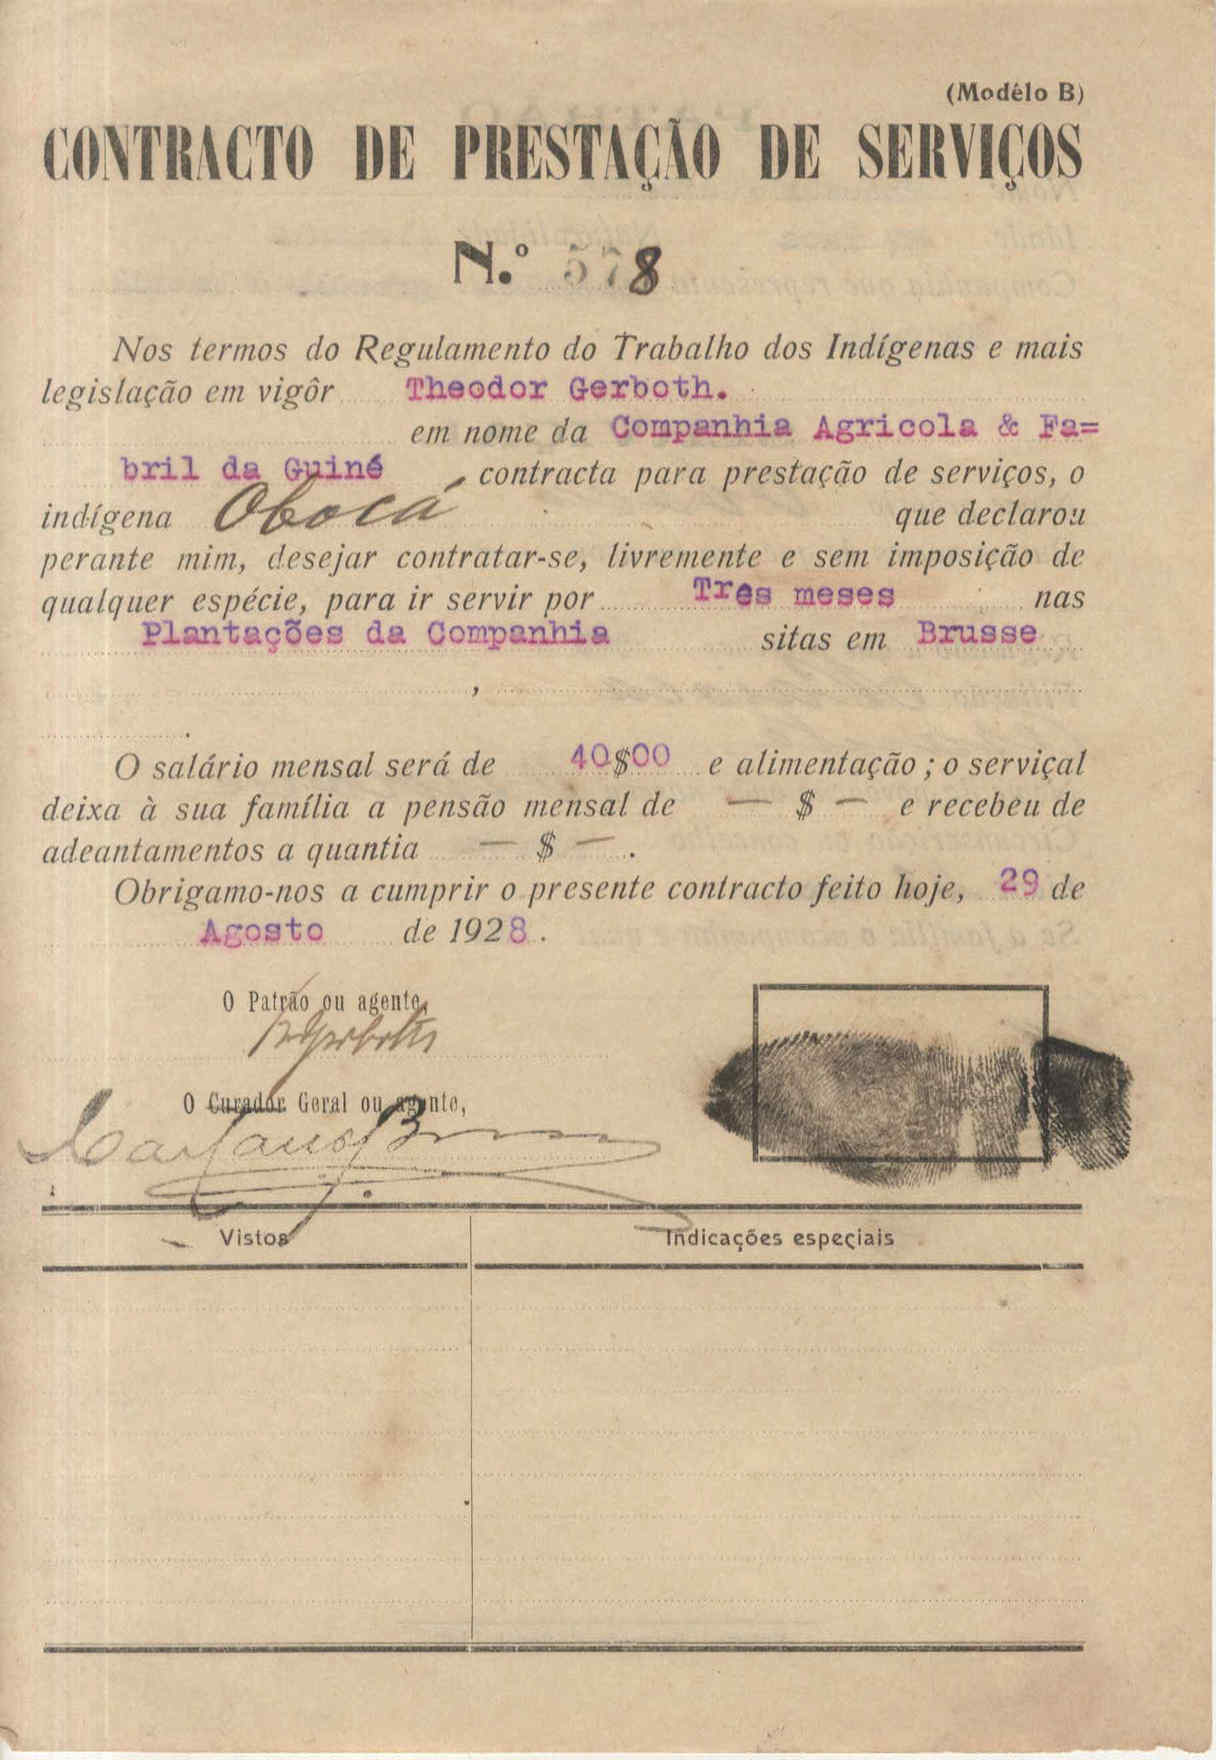 (Modêlo B)
CONTRACTO DE PRESTAÇÃO DE SERVIÇOS
N.º 578
Nos termos do Regulamento do Trabalho dos Indígenas e mais
legislação em vigôr Theodor Gerboth.
em nome da Companhia Agricola & Fa=
bril da Guiné, contracta para prestação de serviços, o
indígena Obocá que declarou
perante mim, desejar contratar-se, livremente e sem imposição de
qualquer espécie, para ir servir por Tres meses nas
Plantações da Companhia sitas em Brusse
,
.
O salário mensal será de 40$00 e alimentação; o serviçal
deixa à sua família a pensão mensal de — $ — e recebeu de
adeantamentos a quantia — $ — .
Obrigamo-nos a cumprir o presente contracto feito hoje, 29 de
Agosto de 1928.
O Patrão ou agente,
O Curador Geral ou agente,
Vistos
Indicações especiais